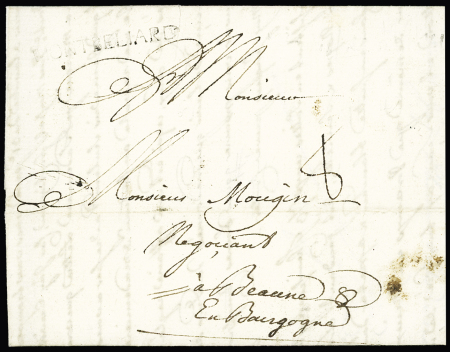 MONTBELIARD
A Monsieur
8
Monsieur Mougin
Negociant
à Beaune
En Bourgogne